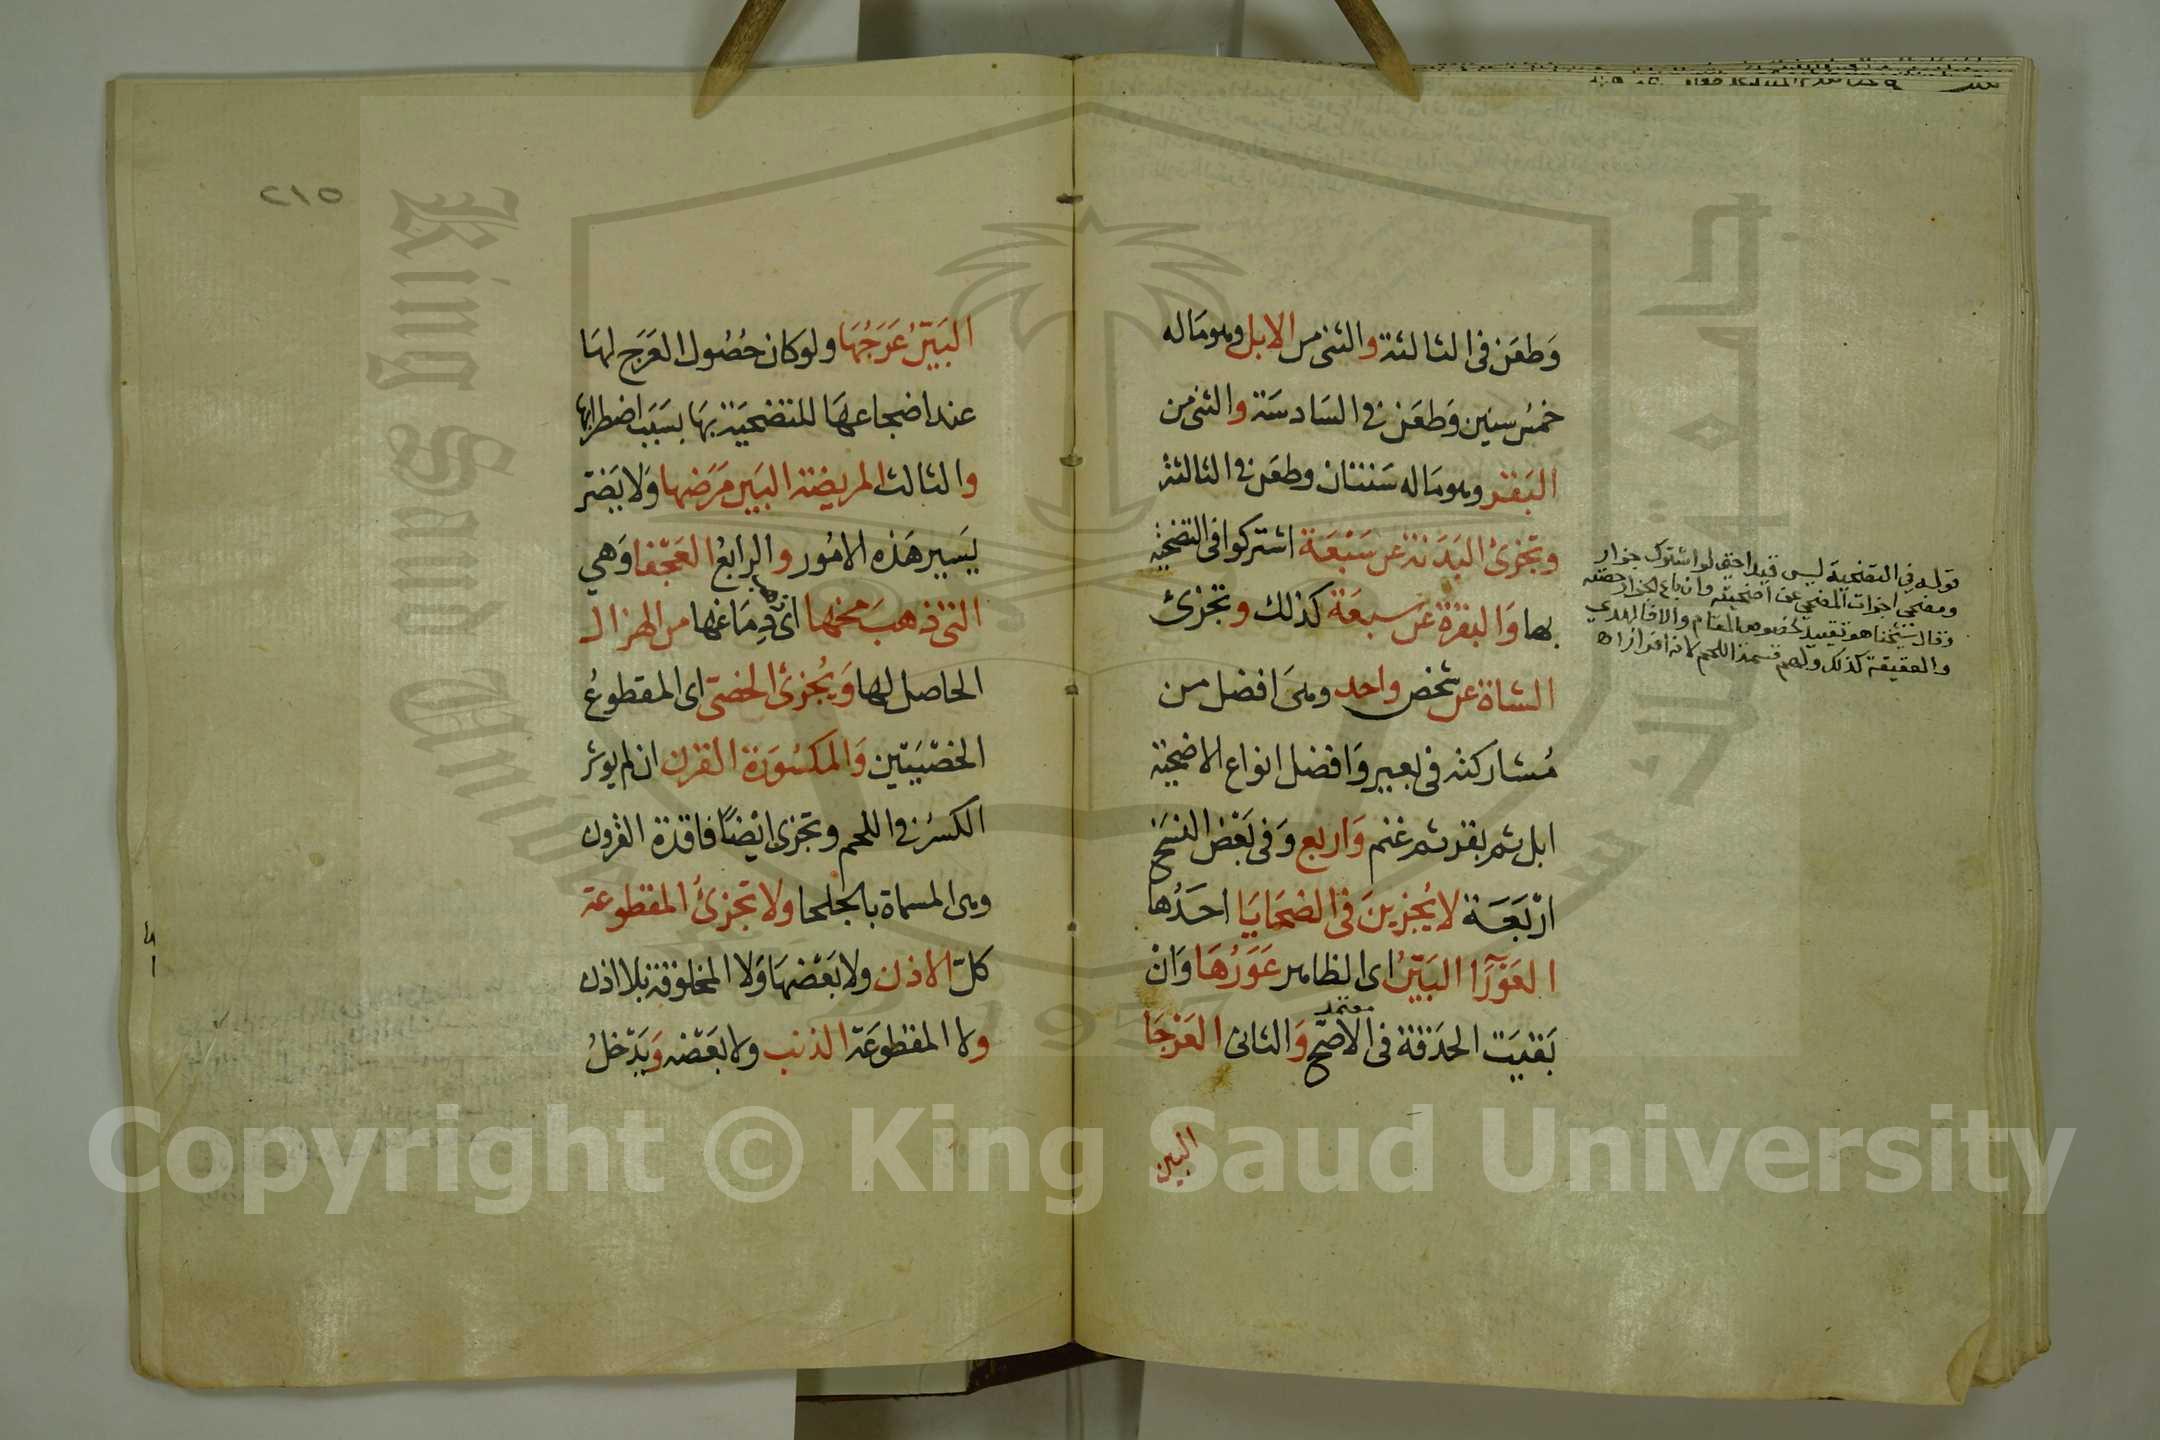 وَطعَن في الثالثة والثني من الابل وهو ماله
خمسُ سنين وَطعَن في السَادسَة والثني من
البَقر وهو ماله سَنتان وطعَن في الثالثة
وتجزئ البَدَنة عن سَبْعَة اشتركوا في التضحية
بها وَالبقرة عن سبعَة كذلك وتجزئ
الشاة عن شخص واحد وهيَ افضل من
مُشاركته في بعير وَافضل انواع الاضحية
ابل ثم بقر ثم غنم وَاربع وَفي بَعْض النسَخ
ارْبَعَة لا يُجزينَ في الضحَايَا احَدُها
العَوْرَآا البَيّنُ اى الظاهر عَوَرُهَا وَانْ
معتمد
بَقيَت الحَدَقة في الاصَحّ وَالثاني العَرْجَا
البين
قوله في التضحية ليس قيدا حتى لو اشترك جزار
ومضحي اجزات المضحي عن اضحيته وان باع الجزار حصته
وقال شيخنا هو تقييد لخصوص المقام والا فالهدي
والعقيقة كذلك ولهم قسمة اللحم لانه افراز اه
٢١٥
البَيّنُ عَرَجُهَا ولو كان حُصُول العَرَج لهَا
عند اضجاعهَا للتضحيَة بهَا بسَبَب اضطرابها
والثالث المريضة البَين مَرَضها وَلا يَضر
يَسير هَذه الامُور والرابعُ العَجْفا وَهي
التى ذهبَ مخها اىْ دِمَاغها من الهزال
الحاصل لها وَيُجزئ الخصيّ اى المقطوعُ
الخصْيَتَين وَالمكسُورَة القرن ان لم يوثر
الكسرُ في اللحم وتجزى ايْضًا فاقدة القرون
وهى المسماة بالجلحا ولا تجزئُ المقطوعة
كلّ الاذن ولا بَعْضهَا وَلا المخلوقة بلا اذن
ولا المقطوعَة الذنب ولا بَعْضه وَيَدْخلُ
King Saud Univ
1957
Copyright © King Saud University